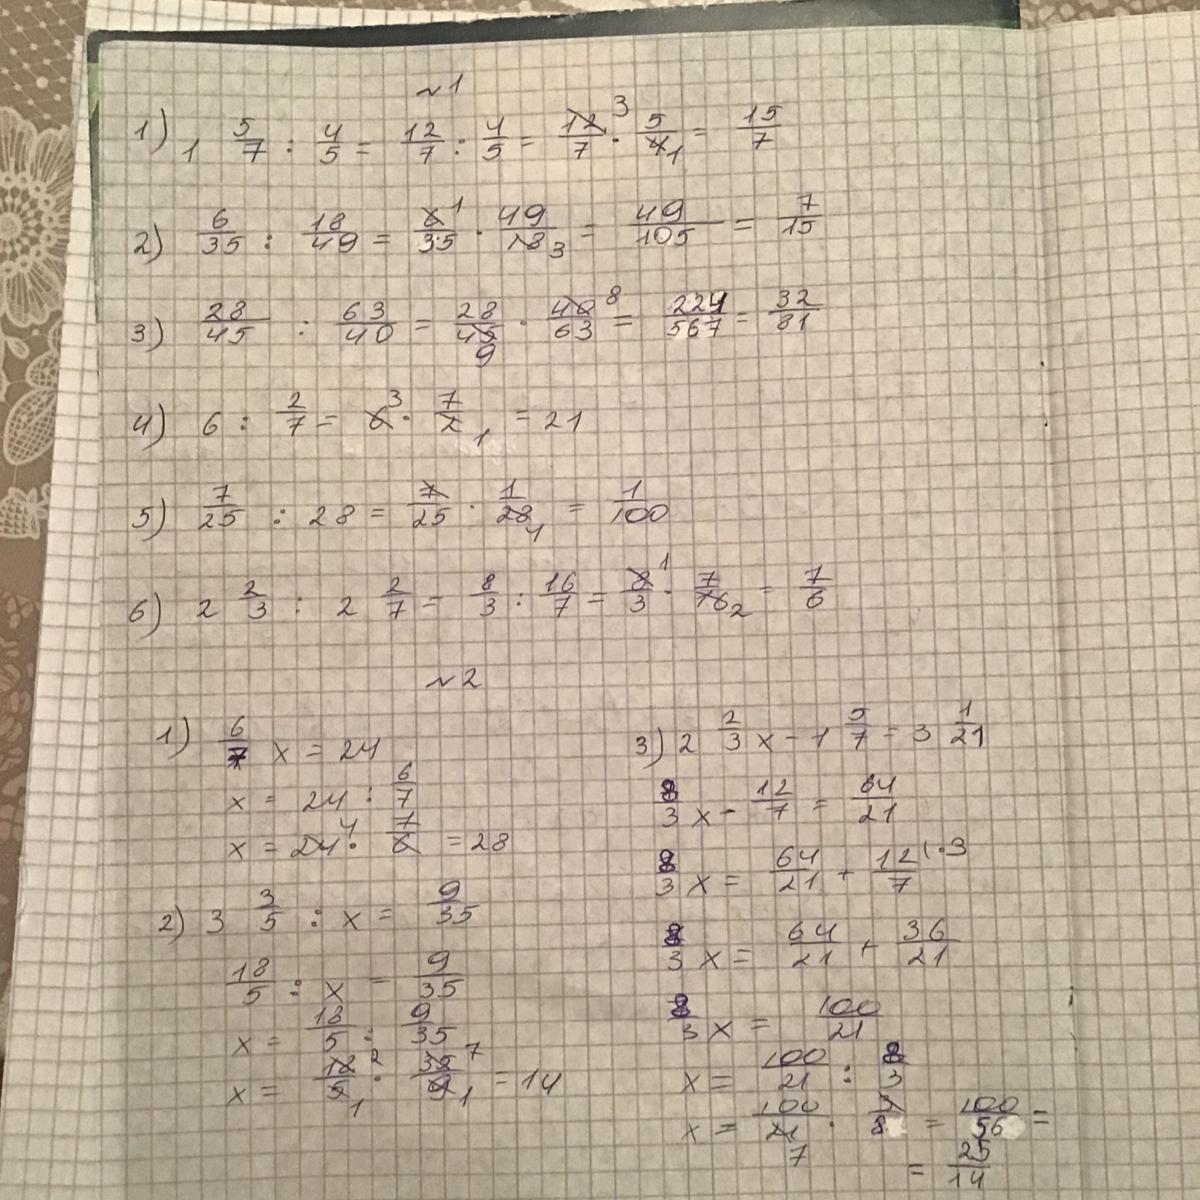 №1
1) 1 5/7 : 4/5 = 12/7 : 4/5 = 12/7 3 · 5/4 1 = 15/7
2) 6/35 : 18/49 = 6 1/35 · 49/18 3 = 49/105 = 7/15
3) 28/45 : 63/40 = 28/45 9 · 40 8/63 = 224/567 = 32/81
4) 6 : 2/7 = 6 3 · 7/2 1 = 21
5) 7/25 : 28 = 7/25 · 1/28 4 = 1/100
6) 2 2/3 : 2 2/7 = 8/3 : 16/7 = 8 1/3 · 7/16 2 = 7/6
№2
1) 6/7 x = 24
x = 24 : 6/7
x = 24 4 · 7/6 = 28
2) 3 3/5 : x = 9/35
18/5 : x = 9/35
x = 18/5 : 9/35
x = 18 2/5 1 · 35 7/9 1 = 14
3) 2 2/3 x - 1 5/7 = 3 1/21
8/3 x - 12/7 = 64/21
8/3 x = 64/21 + 12/7 (·3
8/3 x = 64/21 + 36/21
8/3 x = 100/21
x = 100/21 : 8/3
x = 100/21 7 · 3/8 = 100/56 =
= 25/14